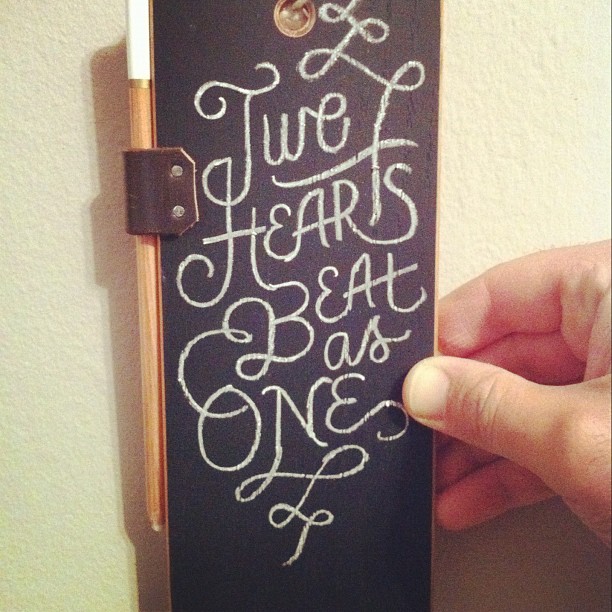 Two
HEARTS
BEAT
as
ONE